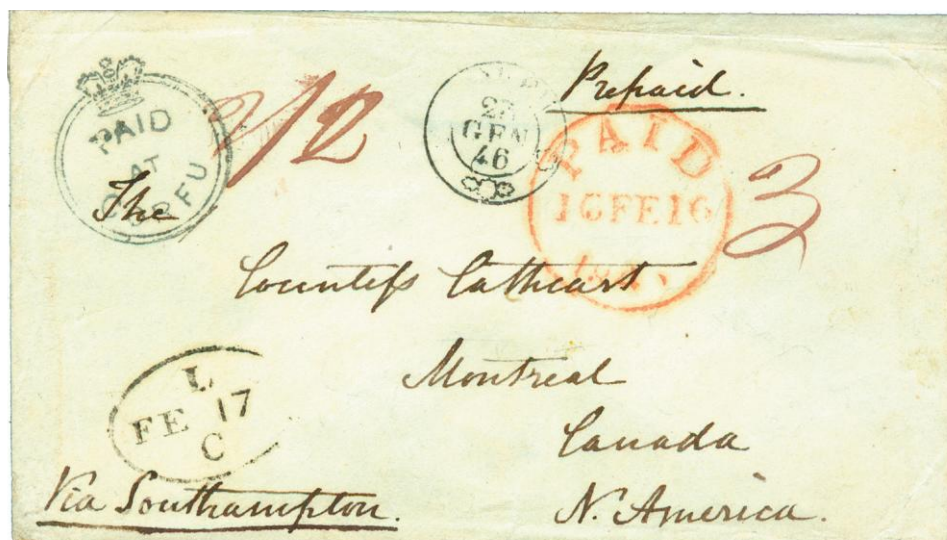 PAID
AT
CORFU
1/2
27
GEN
46
Prepaid.
PAID
16FE16
3
The
Countess Cathcart
Montreal
Canada
N. America.
L
FE 17
C
Via Southampton.